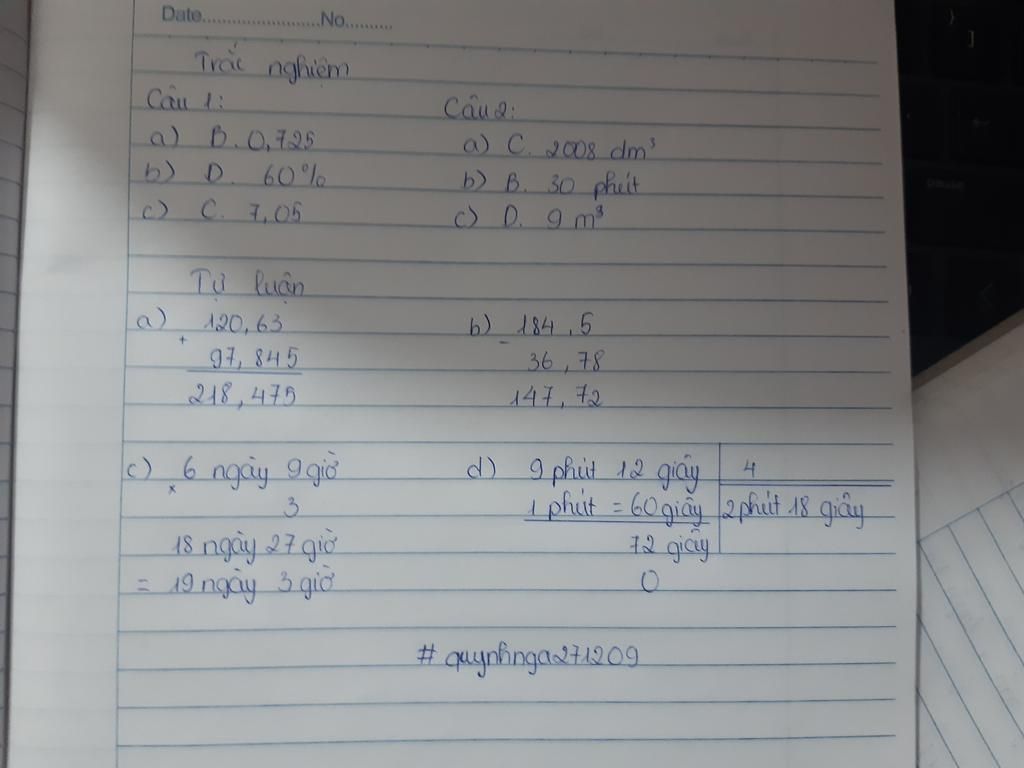 Date........................No..........
Trắc nghiệm
Câu 1: Câu 2:
a) B. 0,725 a) C. 2008 dm³
b) D. 60% b) B. 30 phút
c) C. 7,05 c) D. 9 m³
Tự luận
a) 120,63 b) 184,5
+ 97,845 - 36,78
218,475 147,72
c) 6 ngày 9 giờ d) 9 phút 12 giây 4
x 3 1 phút = 60 giây 2 phút 18 giây
18 ngày 27 giờ 72 giây
= 19 ngày 3 giờ 0
# quynhnga271209